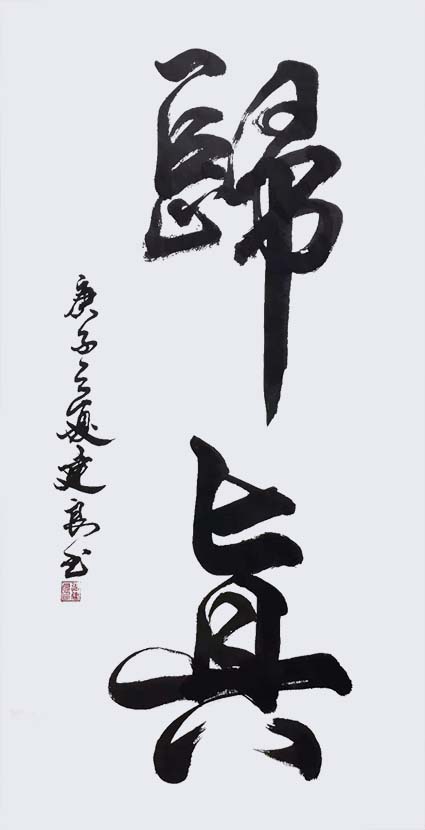 歸真
庚子之夏建良书